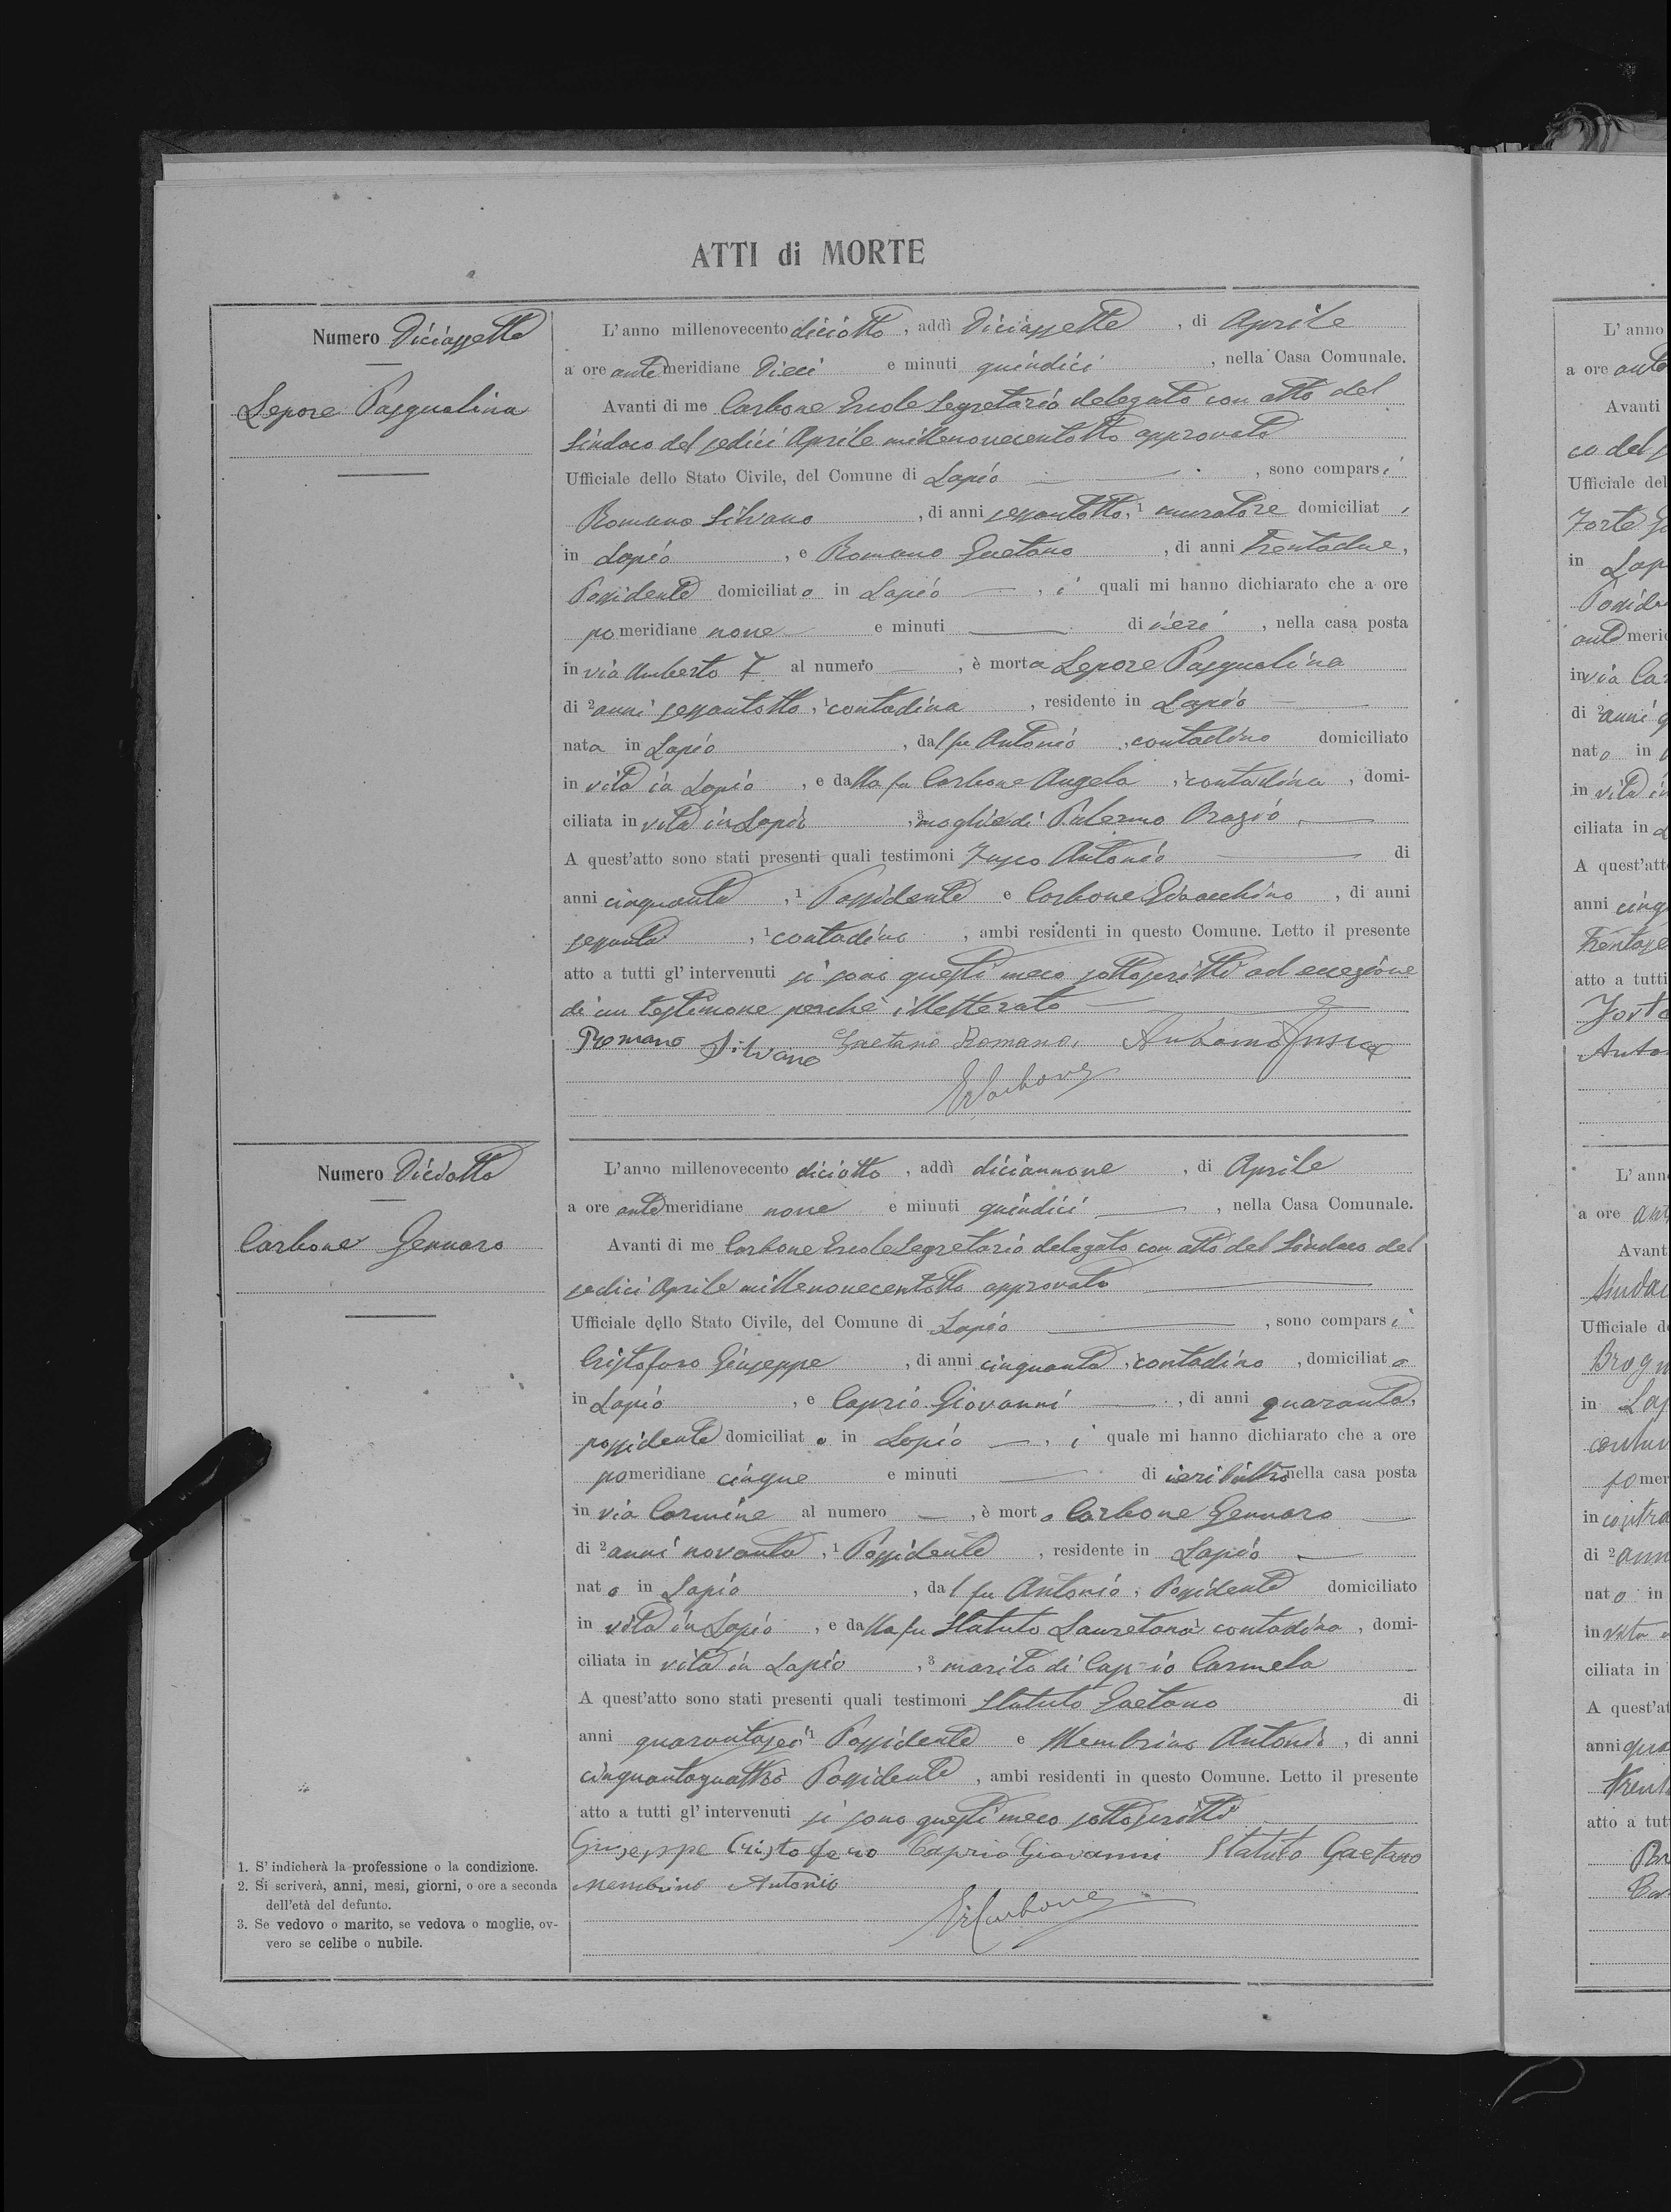 ATTI di MORTE
Numero Diciassette
Lepore Pasqualina
L'anno millenovecento diciotto, addì Diciassette, di Aprile
a ore antemeridiane Dieci e minuti quindici, nella Casa Comunale.
Avanti di me Carbone Ercole Segretario delegato con atto del
Sindaco del sedici Aprile millenovecentotto approvato
Ufficiale dello Stato Civile, del Comune di Lapio, sono comparsi
Romano Silvano, di anni sessantotto, 1 muratore domiciliat
in Lapio, e Romano Gaetano, di anni trentadue,
Possidente domiciliato in Lapio, i quali mi hanno dichiarato che a ore
pomeridiane nove e minuti — di ieri, nella casa posta
in via Umberto I al numero —, è morta Lepore Pasqualina
di 2 anni sessantotto, 1 contadina, residente in Lapio
nata in Lapio, dal fu Antonio, contadino domiciliato
in vita in Lapio, e dalla fu Carbone Angela, contadina, domi-
ciliata in vita in Lapio, 3 moglie di Palermo Orazio
A quest'atto sono stati presenti quali testimoni Fusco Antonio di
anni cinquanta, 1 Possidente e Carbone Gioacchino, di anni
sessanta, 1 contadino, ambi residenti in questo Comune. Letto il presente
atto a tutti gl'intervenuti si sono questi meco sottoscritti ad eccezione
di un testimone perchè illetterato
Romano Silvano Gaetano Romano, Antonio Fusco
ErCarbone
Numero Diciotto
Carbone Gennaro
L'anno millenovecento diciotto, addì diciannove, di Aprile
a ore antemeridiane nove e minuti quindici, nella Casa Comunale.
Avanti di me Carbone Ercole Segretario delegato con atto del Sindaco del
sedici Aprile millenovecentotto approvato
Ufficiale dello Stato Civile, del Comune di Lapio, sono comparsi
Cristofaro Giuseppe, di anni cinquanta, contadino, domiciliato
in Lapio, e Caprio Giovanni, di anni quaranta,
possidente domiciliato in Lapio —, i quale mi hanno dichiarato che a ore
pomeridiane cinque e minuti — di ieri l'altro nella casa posta
in via Carmine al numero —, è morto Carbone Gennaro
di 2 anni novanta, 1 Possidente, residente in Lapio
nato in Lapio, dal fu Antonio, Possidente domiciliato
in vita in Lapio, e dalla fu Statuto Lauretana contadina, domi-
ciliata in vita in Lapio, 3 marito di Caprio Carmela
A quest'atto sono stati presenti quali testimoni Statuto Gaetano di
anni quarantasei 1 Possidente e Membrino Antonio, di anni
cinquantaquattro Possidente, ambi residenti in questo Comune. Letto il presente
atto a tutti gl'intervenuti si sono questi meco sottoscritti
Giuseppe Cristofaro Caprio Giovanni Statuto Gaetano
Membrino Antonio
ErCarbone
1. S'indicherà la professione o la condizione.
2. Si scriverà, anni, mesi, giorni, o ore a seconda
dell'età del defunto.
3. Se vedovo o marito, se vedova o moglie, ov-
vero se celibe o nubile.